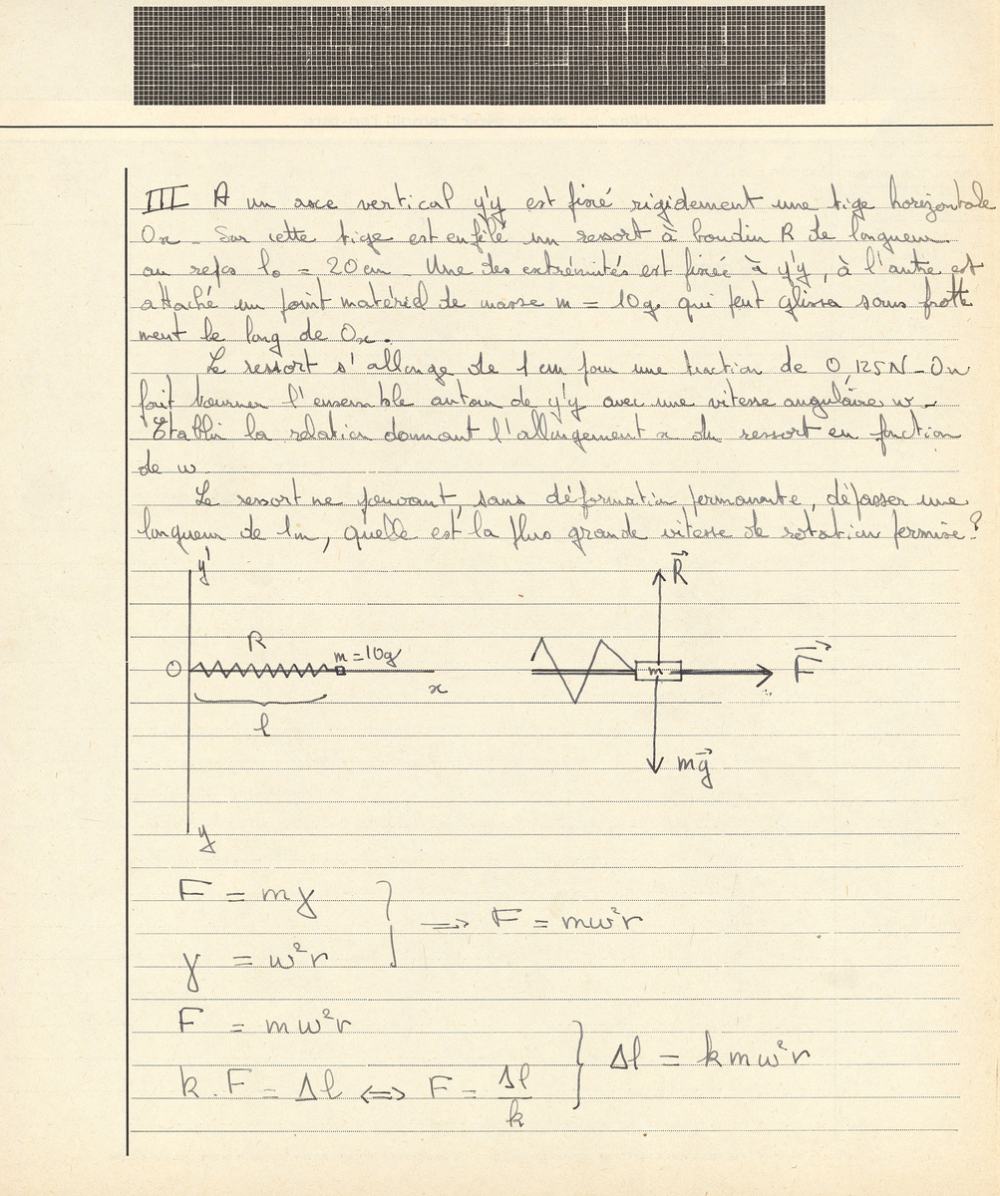 III A un axe vertical y'y est fixé rigidement une tige horizontale
Ox - Sur cette tige est enfilé un ressort à boudin R de longueur
au repos l₀ = 20 cm - Une des extrémités est fixée à y'y, à l'autre est
attaché un point matériel de masse m = 10g. qui peut glisser sans frotte
ment le long de Ox.
Le ressort s'allonge de 1 cm pour une traction de 0,125N - On
fait tourner l'ensemble autour de y'y avec une vitesse angulaire w -
Etablir la relation donnant l'allongement x du ressort en fonction
de w.
Le ressort ne pouvant, sans déformation permanente, dépasser une
longueur de 1m, quelle est la plus grande vitesse de rotation permise?
y'
R
O
m = 10g
x
l
y
R⃗
m
F⃗
mg⃗
F = mγ
γ = ω²r
} => F = mω²r
F = mω²r
k.F = Δl <=> F = Δl/k
} Δl = kmω²r